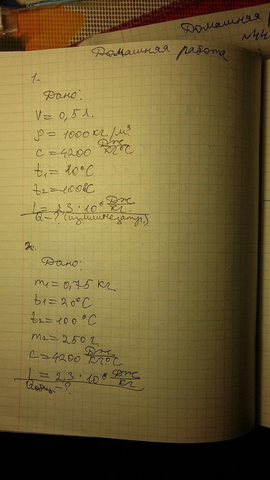 Домашняя
№44
Домашняя работа
1.
Дано:
V = 0,5 л.
ρ = 1000 кг/м³
c = 4200 Дж/кг°С
t₁ = 10°С
t₂ = 100°С
L = 2,3 · 10⁶ Дж/кг.
Q - ?
2.
Дано:
m₁ = 0,75 кг
t₁ = 20°С
t₂ = 100°С
m₂ = 250 г
c = 4200 Дж/кг°С
L = 2,3 · 10⁶ Дж/кг
Qобщ - ?